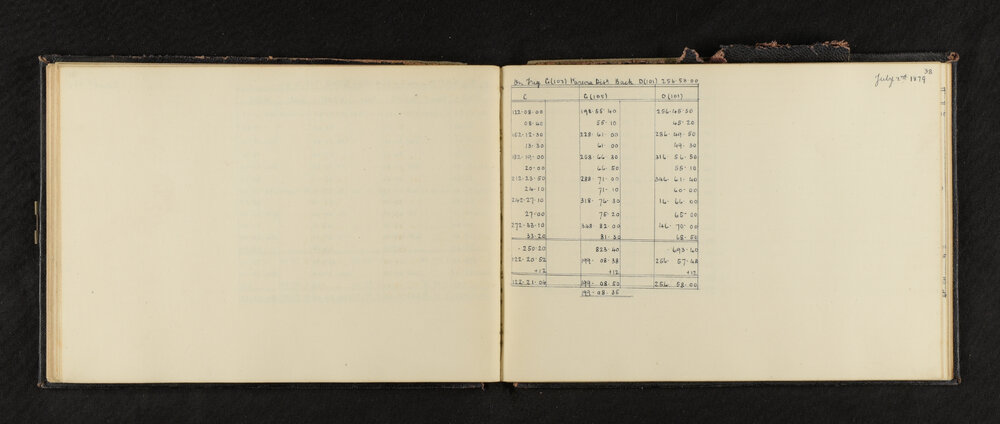 38
July 2nd 1879
Trig C(102) Dist Back D(101) 256.58.00
C C(105) D(101)
122.08.00 198.55.40 256.45.50
08.40 55.10 45.20
152.12.30 228.61.00 286.49.50
13.30 61.00 49.30
182.19.00 258.66.30 316.56.50
20.00 66.50 55.10
212.23.50 288.71.00 346.61.40
24.10 71.10 60.00
242.27.10 318.76.30 16.66.00
27.00 75.20 65.00
272.33.10 348.82.00 46.70.00
33.20 81.30 68.50
250.20 823.40 693.40
122.20.52 199.08.38 256.57.48
+12 +12 +12
122.21.04 199.08.50 256.58.00
199.08.35